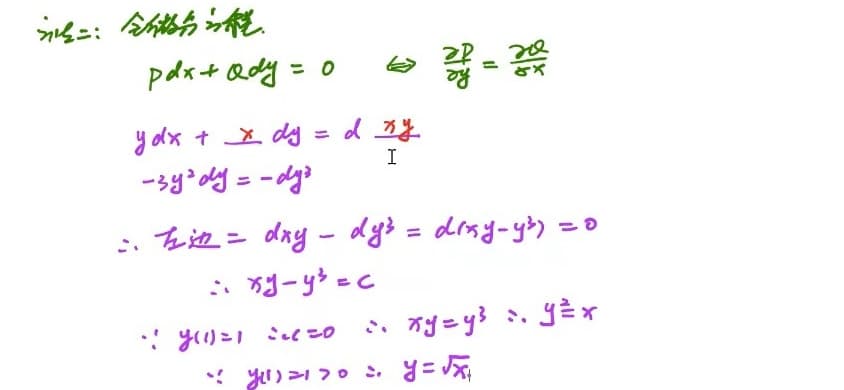 方法二: 全微分方程.
Pdx + Qdy = 0 ⇔ ∂P/∂y = ∂Q/∂x
ydx + x dy = d xy
-3y²dy = -dy³
∴ 左边 = dxy - dy³ = d(xy-y³) = 0
∴ xy-y³ = C
∵ y(1)=1 ∴ C=0 ∴ xy=y³ ∴ y²=x
∵ y(1)=1>0 ∴ y=√x